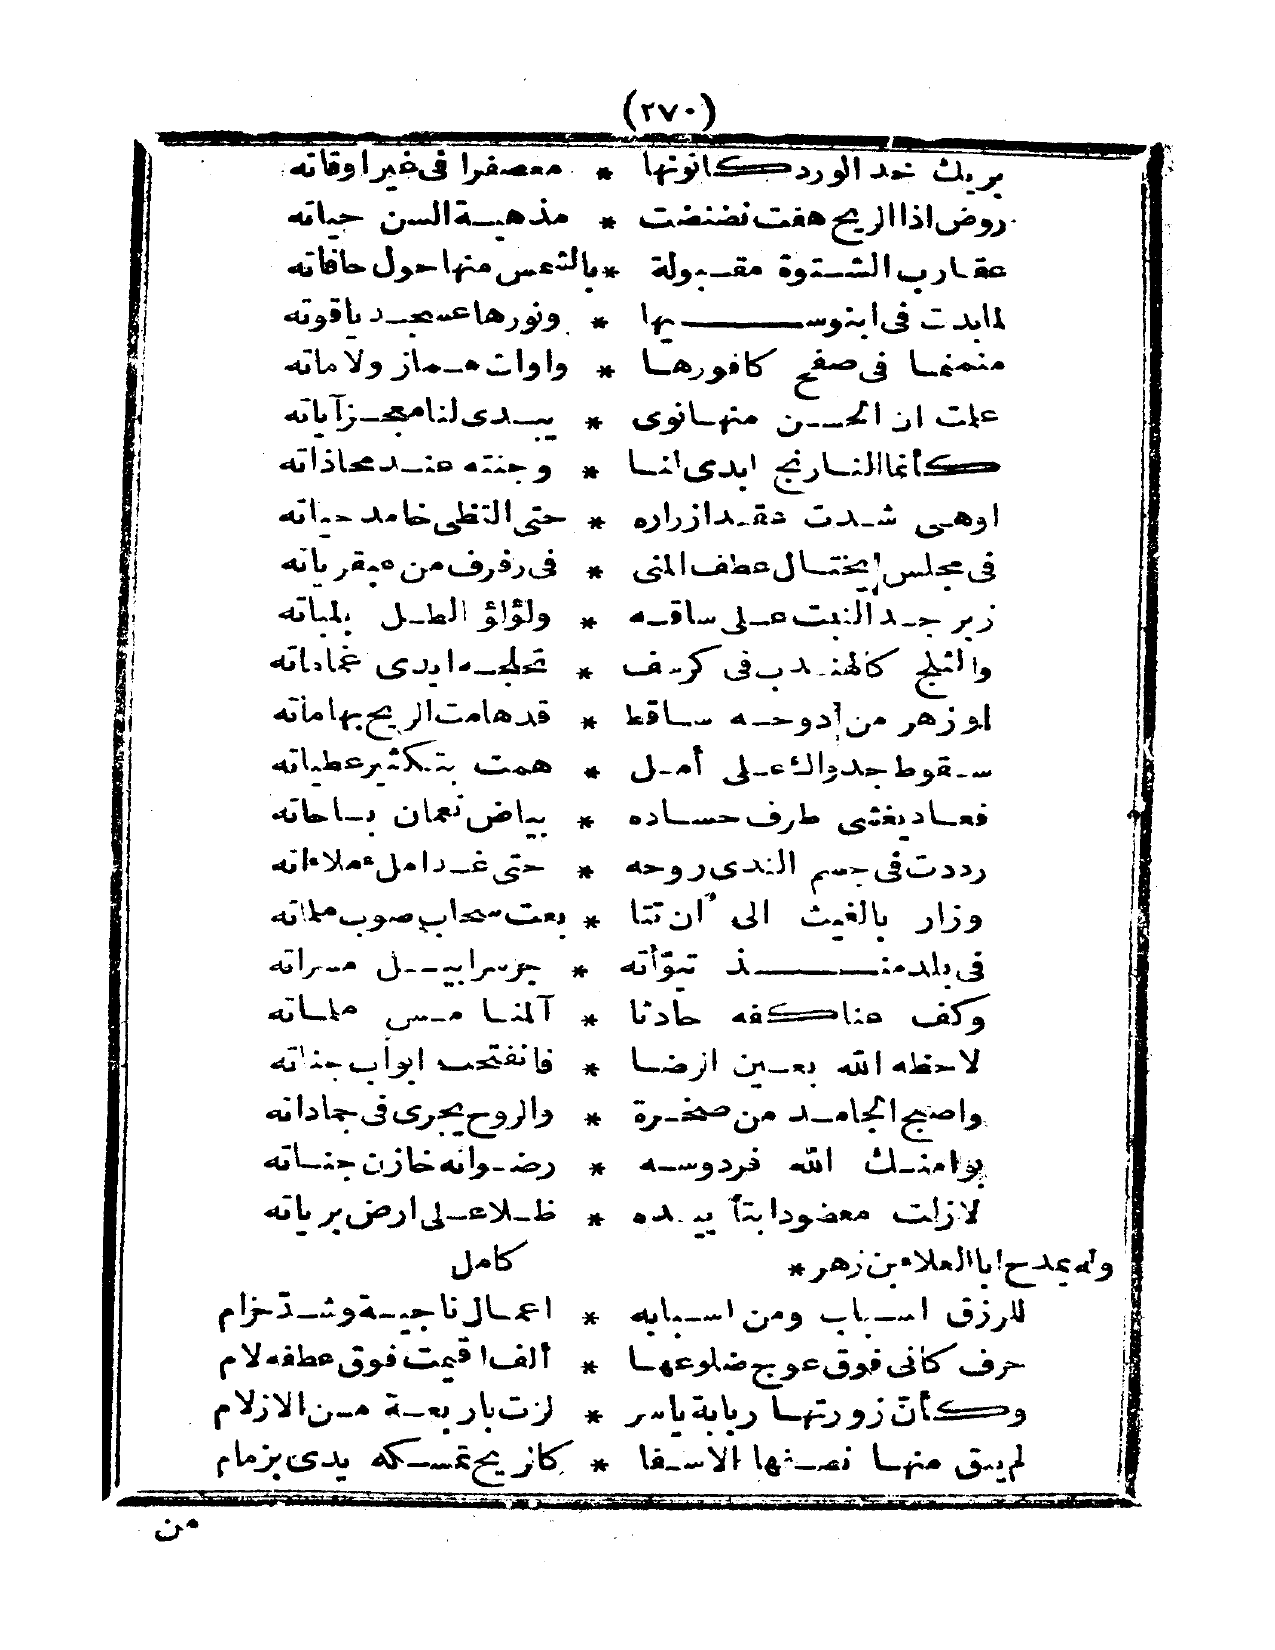 (٢٧٠)
يريك خد الورد كانونها * معصفرا فى غير اوقاته
روض اذا الريح هفت نضنضت * مذهبة السن حياته
عقارب الشتوة مقبولة * بالشمس منها حول حافاته
لما بدت فى ابنوسيها * ونورها عسجد ياقوته
منمنما فى صفح كافورها * واوات مماز ولاماته
علمت ان الحسن منها نوى * يبدى لنا معجز آياته
كأنما النارنج ابدى لنا * وجنته عند محاذاته
اوهى شدت عقد ازراره * حتى التظى خامد حياته
فى مجلس يختال عطف المنى * فى رفرف من عبقرياته
زبرجد النبت على ساقه * ولؤلؤ الطل بلباته
والثلج كالهندب فى كرسف * تحلجه ايدى غماماته
او زهر من دوحه ساقط * قد هامت الريح بهاماته
سقوط جدواك على أمل * همت بتكثير عطياته
فعاد يغشى طرف حساده * بياض نعمان بساحاته
رددت فى جسم الندى روحه * حتى غدا ملء ملاءاته
وزار بالغيث الى أن تتا * بعت سحاب صوب ملماته
فى بلد منذ تبوّأته * جر سرابيل مسراته
وكف عنا كفه حادثا * آلمنا مس ملماته
لاحظه الله بعين الرضا * فانفتحت ابواب جناته
واصبح الجامد من صخرة * والروح يجرى فى جماداته
بوا منك الله فردوسه * رضوانه خازن جناته
لازلت معضودا بتأييده * ظلا على ارض برياته
وله يمدح ابا العلاء بن زهر * كامل
للرزق اسباب ومن اسبابه * اعمال ناجية وشدّ حزام
حرف كانى فوق عوج ضلوعها * ألف اقيمت فوق عطفه لام
وكأنّ زورتها ربابة ياسر * لزت باربعة من الازلام
لم يبق منها نصنها الا سفا * كالريح تمسكه يدى بزمام
من